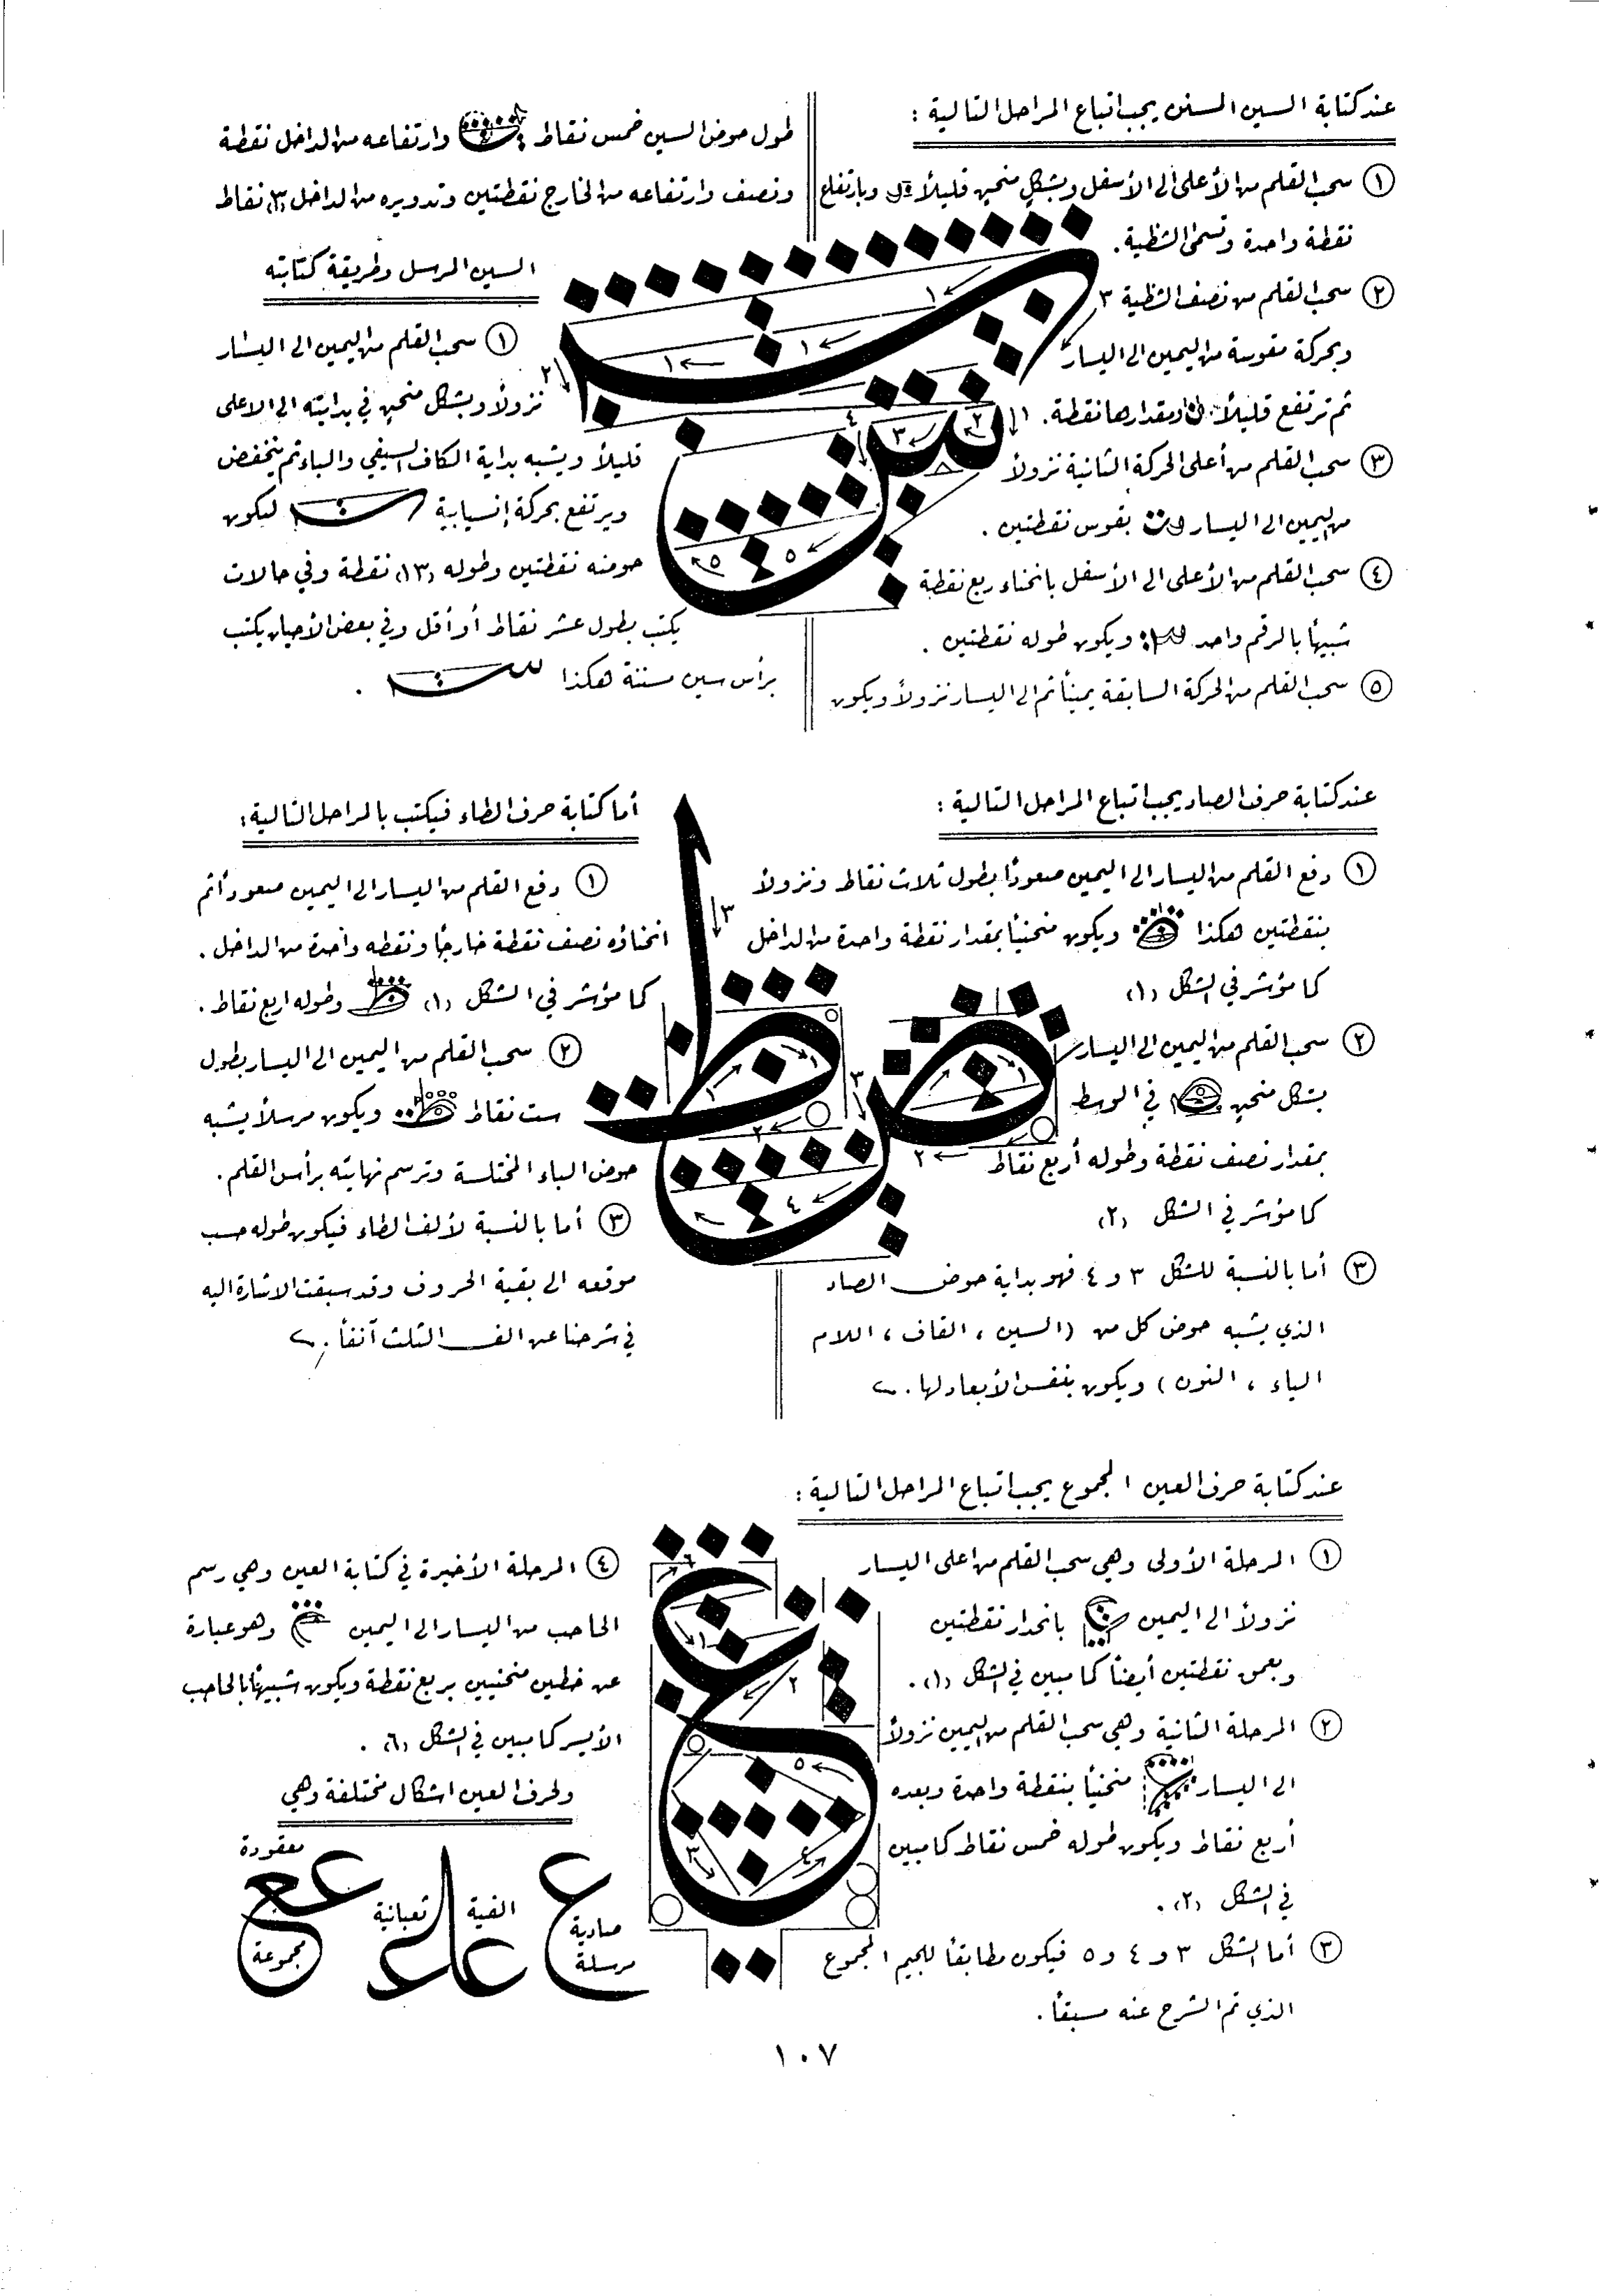 عند كتابة السين المسنن يجب اتباع المراحل التالية :
١ سحب القلم من الأعلى الى الأسفل وبشكل منحنٍ قليلاً وبارتفاع
نقطة واحدة وتسمى الشظية .
٢ سحب القلم من نصف الشظية
وبحركة مقوسة من اليمين الى اليسار
ثم ترتفع قليلاً ومقدارها نقطة .
٣ سحب القلم من أعلى الحركة الثانية نزولاً
من اليمين الى اليسار بقوس نقطتين .
٤ سحب القلم من الأعلى الى الأسفل بانحناء ربع نقطة
شبيهاً بالرقم واحد ويكون طوله نقطتين .
٥ سحب القلم من الحركة السابقة يميناً ثم الى اليسار نزولاً ويكون
طول حوض السين خمس نقاط وارتفاعه من الداخل نقطة
ونصف وارتفاعه من الخارج نقطتين وتدويره من الداخل (٣) نقاط
السين المرسل وطريقة كتابته
١ سحب القلم من اليمين الى اليسار
نزولاً وبشكل منحنٍ في بدايته الى الاعلى
قليلاً ويشبه بداية الكاف السيفي والباء ثم ينخفض
ويرتفع بحركة إنسيابية ليكون
حوضه نقطتين وطوله (١٣) نقطة وفي حالات
يكتب بطول عشر نقاط أو أقل وفي بعض الأحيان يكتب
برأس سين مسننة هكذا .
عند كتابة حرف الصاد يجب اتباع المراحل التالية :
١ دفع القلم من اليسار الى اليمين صعوداً بطول ثلاث نقاط ونزولاً
بنقطتين هكذا ويكون منحنياً بمقدار نقطة واحدة من الداخل
كما مؤشر في الشكل (١)
٢ سحب القلم من اليمين الى اليسار
بشكل منحنٍ في الوسط
بمقدار نصف نقطة وطوله أربع نقاط
كما مؤشر في الشكل (٢)
٣ أما بالنسبة للشكل ٣ و ٤ فهو بداية حوض الصاد
الذي يشبه حوض كل من (السين ، القاف ، اللام
الياء ، النون) ويكون بنفس الأبعاد لها .
أما كتابة حرف الطاء فيكتب بالمراحل التالية :
١ دفع القلم من اليسار الى اليمين صعوداً ثم
انحناؤه نصف نقطة خارجاً ونقطه واحدة من الداخل .
كما مؤشر في الشكل (١) وطوله اربع نقاط .
٢ سحب القلم من اليمين الى اليسار بطول
ست نقاط ويكون مرسلاً يشبه
حوض الباء المختلسة وترسم نهايته برأس القلم .
٣ أما بالنسبة لألف الطاء فيكون طوله حسب
موقعه الى بقية الحروف وقد سبقت الاشارة اليه
في شرحنا عن الف الثلث آنفاً .
عند كتابة حرف العين المجموع يجب اتباع المراحل التالية :
١ المرحلة الأولى وهي سحب القلم من اعلى اليسار
نزولاً الى اليمين بانحدار نقطتين
وبعمق نقطتين أيضاً كما مبين في الشكل (١) .
٢ المرحلة الثانية وهي سحب القلم من اليمين نزولاً
الى اليسار منحنياً بنقطة واحدة وبعده
أربع نقاط ويكون طوله خمس نقاط كما مبين
في الشكل (٢) .
٣ أما الشكل ٣ و ٤ و ٥ فيكون مطابقاً للجيم المجموع
الذي تم الشرح عنه مسبقاً .
٤ المرحلة الأخيرة في كتابة العين وهي رسم
الحاجب من اليسار الى اليمين وهو عبارة
عن خطين منحنيين بربع نقطة ويكون شبيهاً بالحاجب
الأيسر كما مبين في الشكل (٦) .
ولحرف العين اشكال مختلفة وهي
معقودة
مجموعة
ثعبانية
الفية
صادية
مرسلة
١٠٧